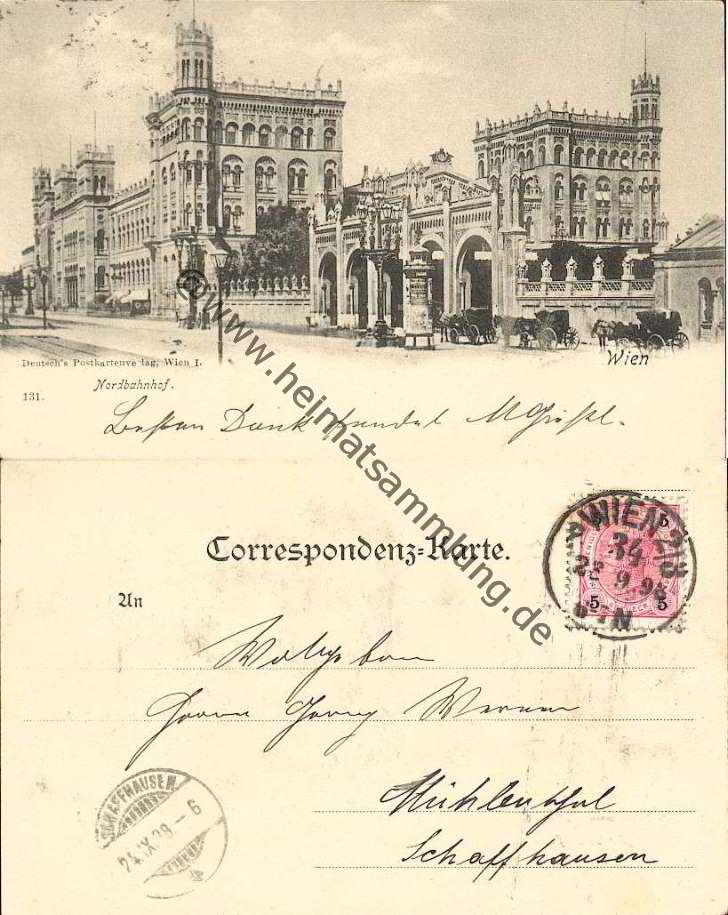 Deutsch's Postkartenverlag, Wien I.
Wien
Nordbahnhof.
131.
Besten Dank
© www.heimatsammlung.de
Correspondenz-Karte.
WIEN
5
9.98
5 5
An
Herrn Georg Werner
SCHAFFHAUSEN
24.IX.98.-6
Mühlenthal
Schaffhausen